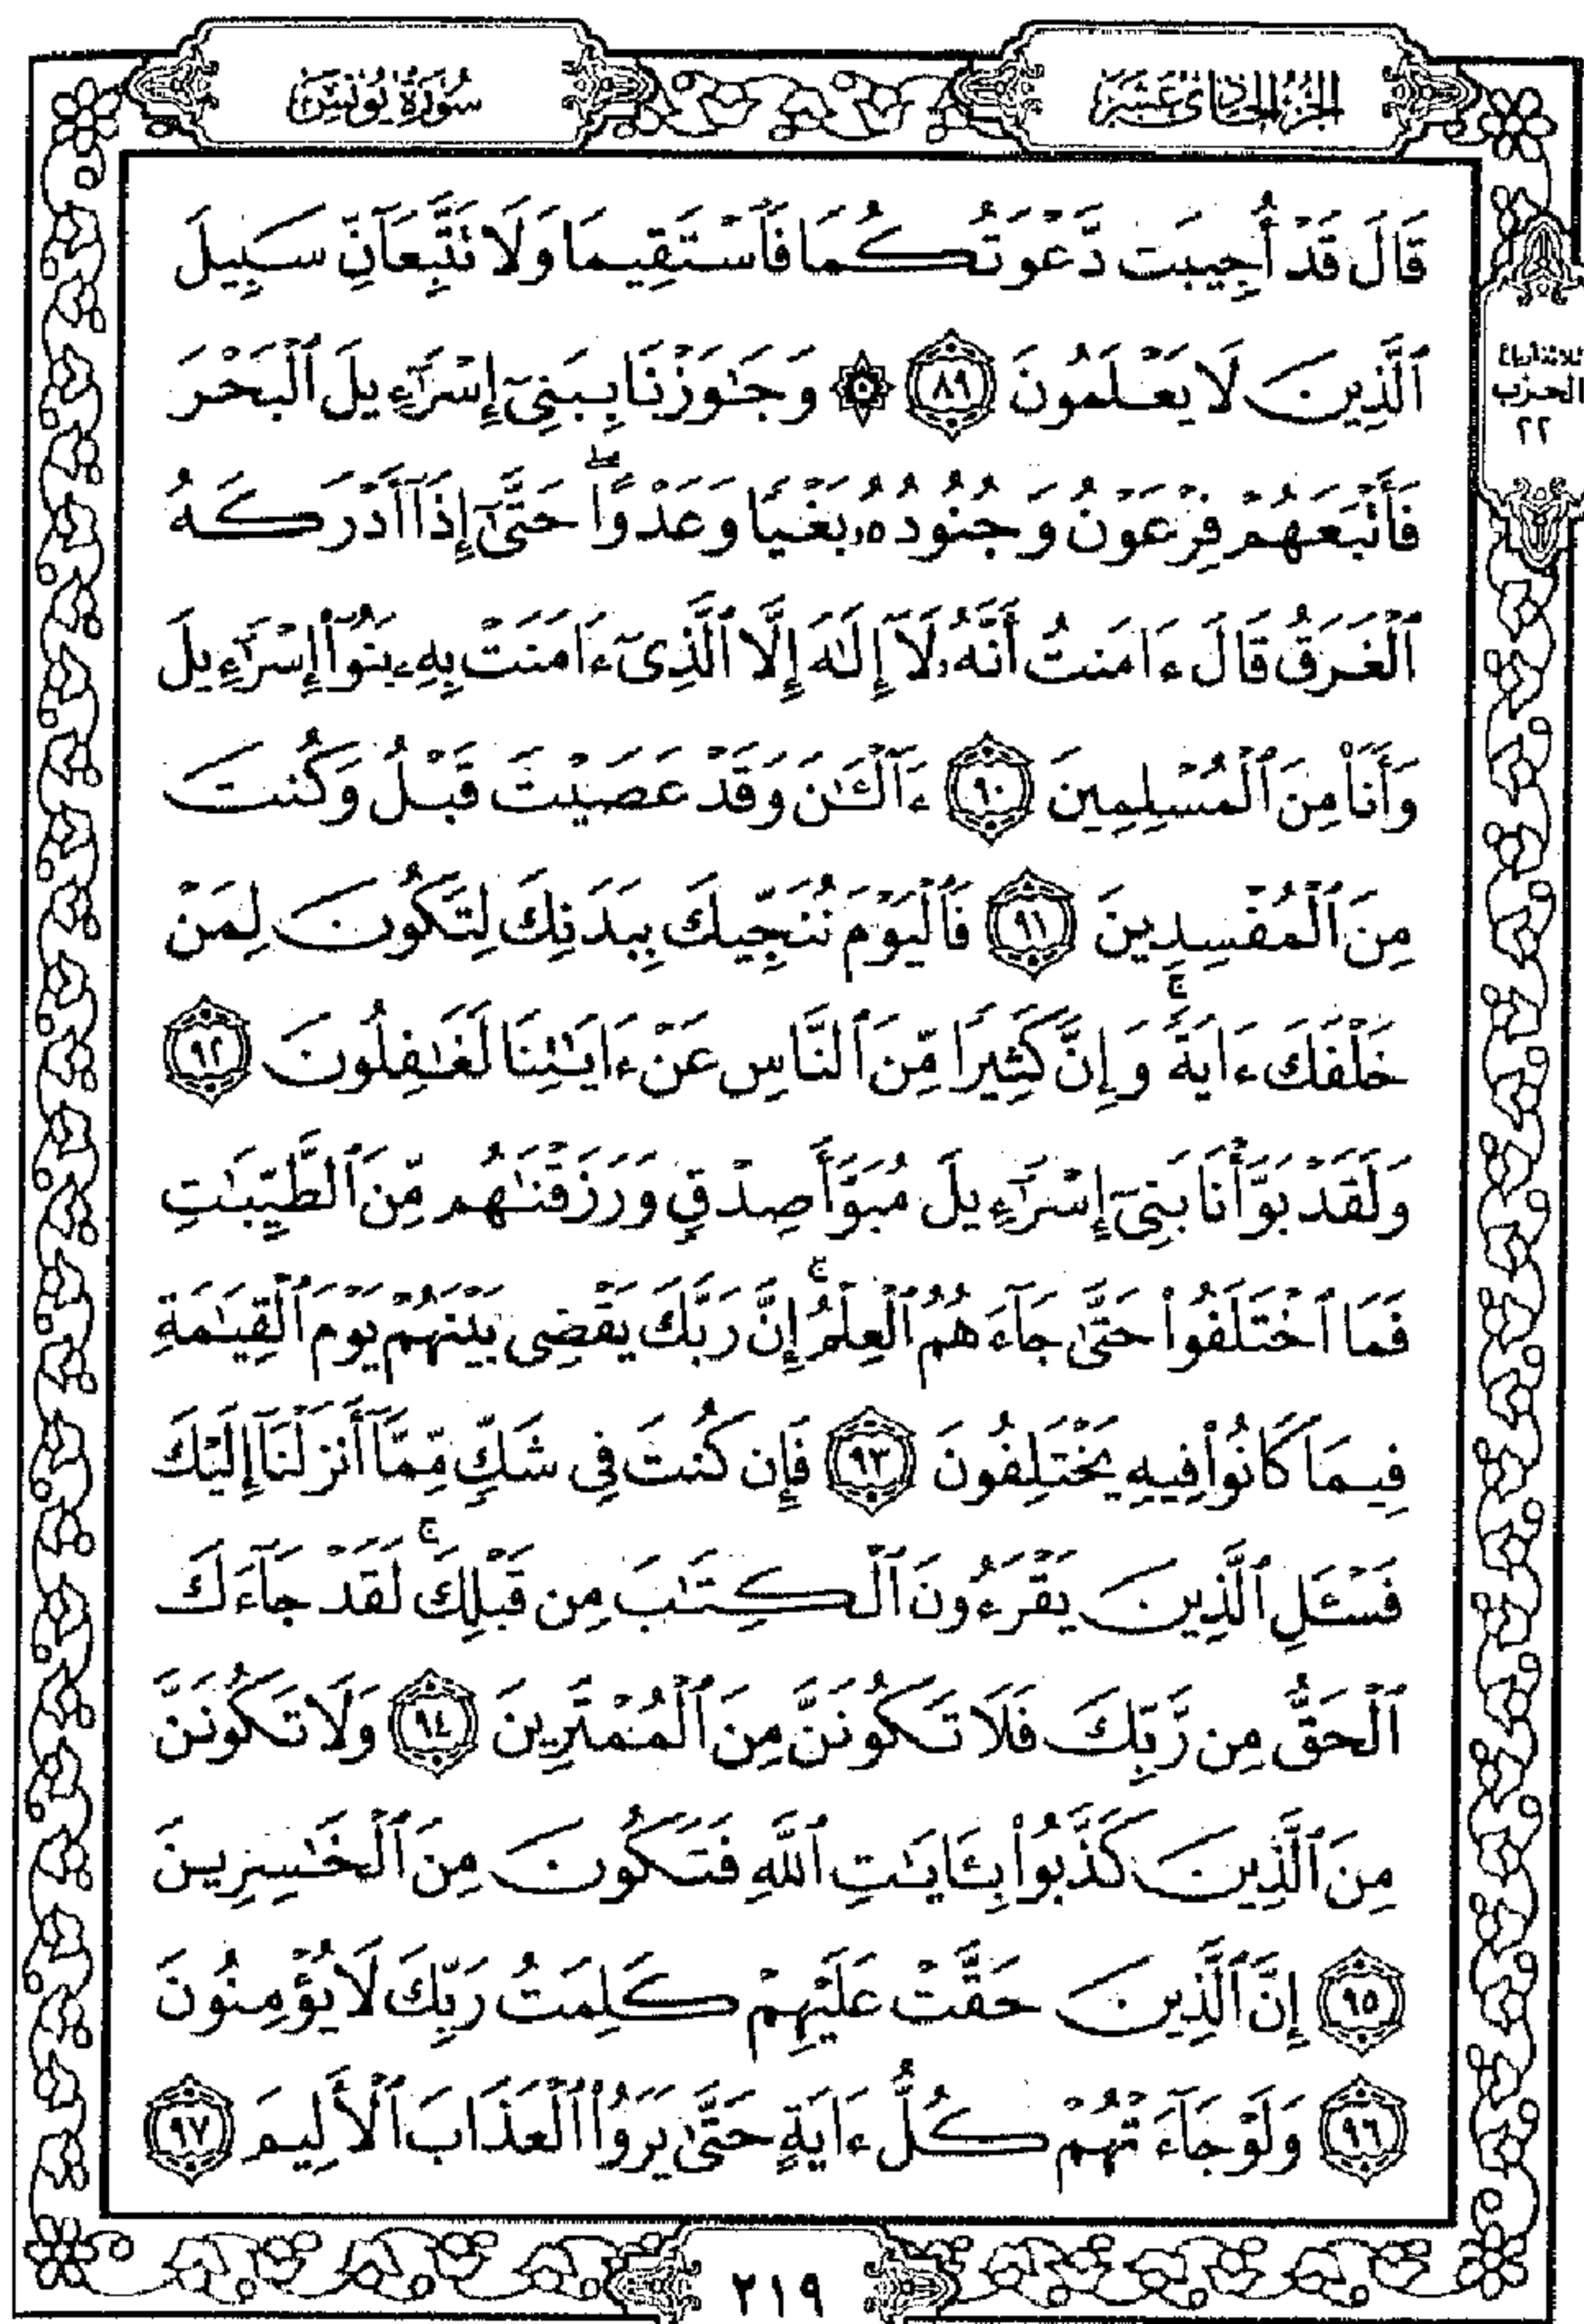 الجزء الحادي عشر
سورة يونس
قَالَ قَدْ أُجِيبَت دَّعْوَتُكُمَا فَٱسْتَقِيمَا وَلَا تَتَّبِعَآنِّ سَبِيلَ
ٱلَّذِينَ لَا يَعْلَمُونَ ٨٩ ۞ وَجَٰوَزْنَا بِبَنِىٓ إِسْرَٰٓءِيلَ ٱلْبَحْرَ
ثلاثة أرباع
الحزب
٢٢
فَأَتْبَعَهُمْ فِرْعَوْنُ وَجُنُودُهُۥ بَغْيًا وَعَدْوًا ۖ حَتَّىٰٓ إِذَآ أَدْرَكَهُ
ٱلْغَرَقُ قَالَ ءَامَنتُ أَنَّهُۥ لَآ إِلَٰهَ إِلَّا ٱلَّذِىٓ ءَامَنَتْ بِهِۦ بَنُوٓا۟ إِسْرَٰٓءِيلَ
وَأَنَا۠ مِنَ ٱلْمُسْلِمِينَ ٩٠ ءَآلْـَٰٔنَ وَقَدْ عَصَيْتَ قَبْلُ وَكُنتَ
مِنَ ٱلْمُفْسِدِينَ ٩١ فَٱلْيَوْمَ نُنَجِّيكَ بِبَدَنِكَ لِتَكُونَ لِمَنْ
خَلْفَكَ ءَايَةً ۚ وَإِنَّ كَثِيرًا مِّنَ ٱلنَّاسِ عَنْ ءَايَٰتِنَا لَغَٰفِلُونَ ٩٢
وَلَقَدْ بَوَّأْنَا بَنِىٓ إِسْرَٰٓءِيلَ مُبَوَّأَ صِدْقٍ وَرَزَقْنَٰهُم مِّنَ ٱلطَّيِّبَٰتِ
فَمَا ٱخْتَلَفُوا۟ حَتَّىٰ جَآءَهُمُ ٱلْعِلْمُ ۚ إِنَّ رَبَّكَ يَقْضِى بَيْنَهُمْ يَوْمَ ٱلْقِيَٰمَةِ
فِيمَا كَانُوا۟ فِيهِ يَخْتَلِفُونَ ٩٣ فَإِن كُنتَ فِى شَكٍّ مِّمَّآ أَنزَلْنَآ إِلَيْكَ
فَسْـَٔلِ ٱلَّذِينَ يَقْرَءُونَ ٱلْكِتَٰبَ مِن قَبْلِكَ ۚ لَقَدْ جَآءَكَ
ٱلْحَقُّ مِن رَّبِّكَ فَلَا تَكُونَنَّ مِنَ ٱلْمُمْتَرِينَ ٩٤ وَلَا تَكُونَنَّ
مِنَ ٱلَّذِينَ كَذَّبُوا۟ بِـَٔايَٰتِ ٱللَّهِ فَتَكُونَ مِنَ ٱلْخَٰسِرِينَ
٩٥ إِنَّ ٱلَّذِينَ حَقَّتْ عَلَيْهِمْ كَلِمَتُ رَبِّكَ لَا يُؤْمِنُونَ
٩٦ وَلَوْ جَآءَتْهُمْ كُلُّ ءَايَةٍ حَتَّىٰ يَرَوُا۟ ٱلْعَذَابَ ٱلْأَلِيمَ ٩٧
٢١٩